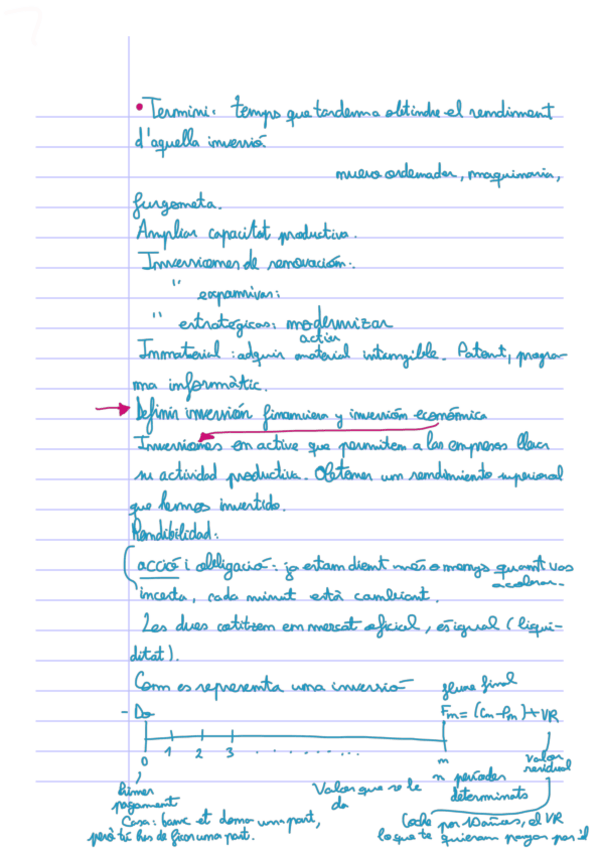 • Termini: temps que tardem a obtindre el rendiment
d'aquella inversió.
nuevo ordenador, maquinaria,
furgoneta.
Ampliar capacitat productiva.
Inversiones de renovación:
" expansivas:
" estratégicas: modernizar
Immaterial: adquir material intangible. Patent, progra-
activo
ma informàtic.
Definir inversión financiera y inversión económica
Inversiones en active que permiten a las empresas llevar
su actividad productiva. Obtener un rendimiento superior al
que hemos invertido.
Rendibilidad:
acció i obligació: ja estam dient més o menys quant vos
incerta, cada minut està cambiant.
Les dues cotitzen en mercat oficial, és igual (liqui-
ditat).
Com es representa una inversió
fluxe final
- Do
Fn = (Cn-Pn) + VR
0 1 2 3 . . . . . . . . . n
valor
residual
n períodes
determinats
Primer
pagament
Valor que se le
da
Casa: banc et dona una part,
però tú has de ficar una part.
Coche por 10 años, el VR
lo que te quieran pagar por él